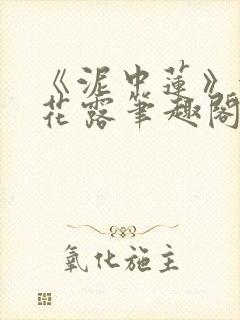 《泥中莲》
花露笔趣阁
氧化施主